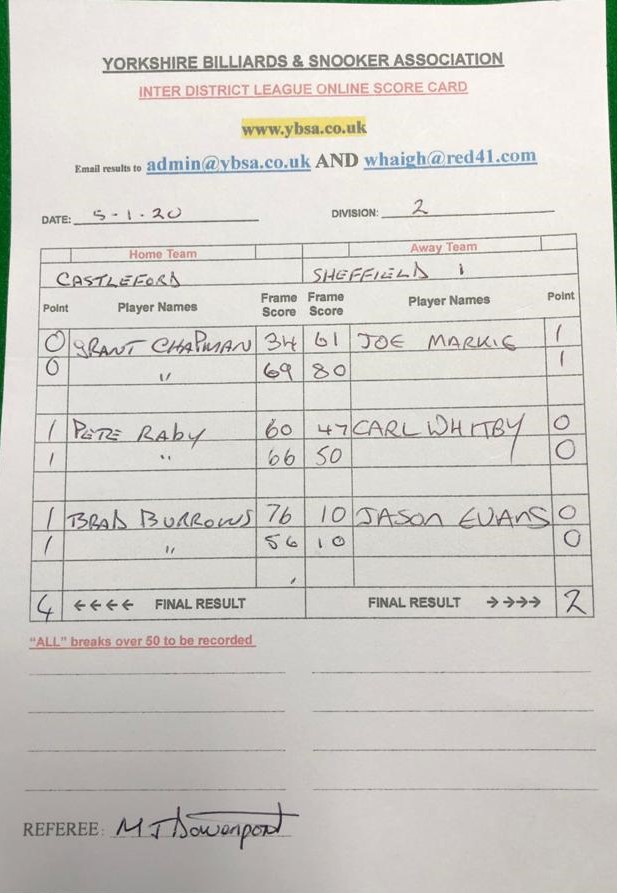 YORKSHIRE BILLIARDS & SNOOKER ASSOCIATION
INTER DISTRICT LEAGUE ONLINE SCORE CARD
www.ybsa.co.uk
Email results to admin@ybsa.co.uk AND whaigh@red41.com
DATE: 5-1-20 DIVISION: 2
Home Team Away Team
CASTLEFORD SHEFFIELD 1
Point Player Names Frame Score Frame Score Player Names Point
0 GRANT CHAPMAN 34 61 JOE MARKIE 1
0 " 69 80 1
1 PETE RABY 60 47 CARL WHITBY 0
1 " 66 50 0
1 BRAD BURROWS 76 10 JASON EVANS 0
1 " 56 10 0
4 ←←←← FINAL RESULT FINAL RESULT →→→→ 2
"ALL" breaks over 50 to be recorded
REFEREE: M J Davenport